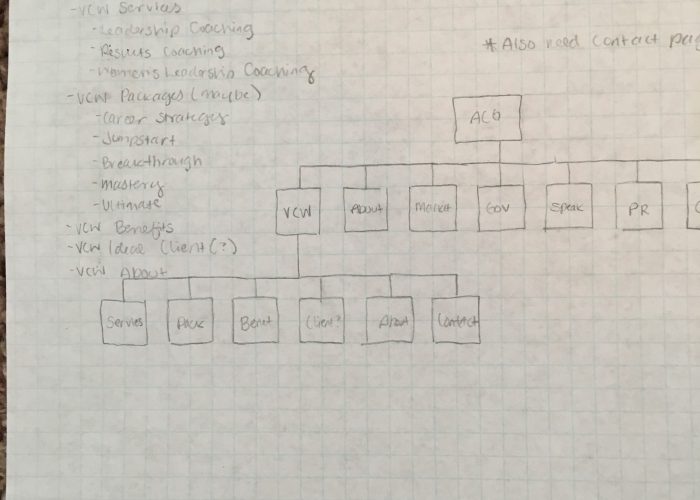 -VCW Services
-Leadership Coaching
-Results Coaching
-Womens Leadership Coaching
*Also need contact
-VCW Packages (maybe)
-Career Strategies
-Jumpstart
-Breakthrough
-Mastery
-Ultimate
-VCW Benefits
-VCW Ideal Client (?)
-VCW About
ACG
VCW About Market GOV Speak PR
Servies Pack Benet Client? About Contact